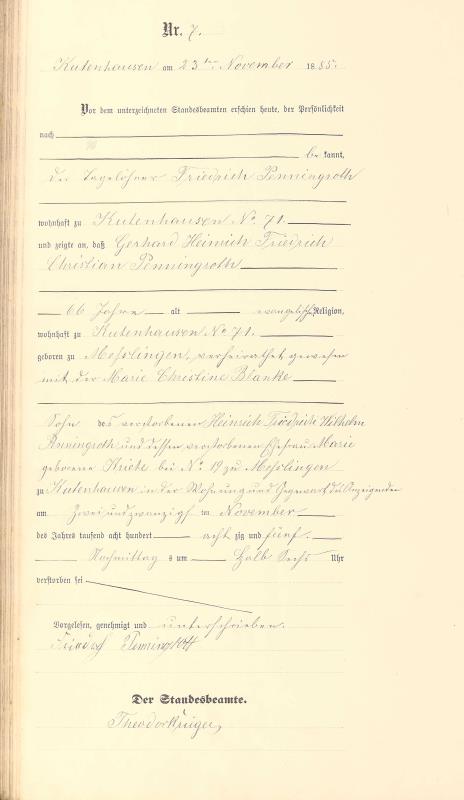 Nr. 7.
Kutenhausen am 23ten November 1885.
Vor dem unterzeichneten Standesbeamten erschien heute, der Persönlichkeit
nach
be kannt,
der Tagelöhner Friedrich Penningroth
wohnhaft zu Kutenhausen No. 71.
und zeigte an, daß Gerhard Heinrich Friedrich
Christian Penningroth
66 Jahre alt evangelischer Religion,
wohnhaft zu Kutenhausen No 71.
geboren zu Messlingen, verheirathet gewesen
mit der Marie Christine Blanke
Sohn des verstorbenen Heinrich Friedrich Wilhelm
Penningroth und dessen verstorbenen Ehefrau Marie
geborene Kriete bei No. 19 zu Messlingen
zu Kutenhausen in der Wohnung und Gegenwart des Anzeigenden
am Zweiundzwanzigst en November
des Jahres tausend acht hundert acht zig und fünf.
Nachmittag s um Halb Sechs Uhr
verstorben sei
Vorgelesen, genehmigt und unterschrieben.
Friedrich Penningroth
Der Standesbeamte.
Theodor Krüger,